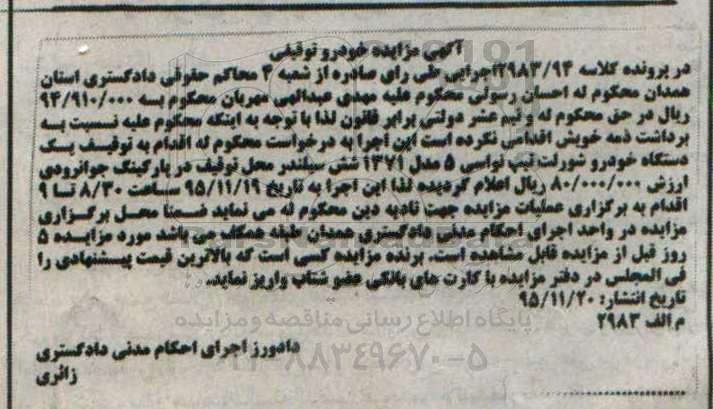 آگهی مزایده خودرو توقیفی
در پرونده کلاسه ۲۹۸۳/۹۴اجرایی طی رای صادره از شعبه ۴ محاکم حقوقی دادگستری استان
همدان محکوم له احسان رسولی محکوم علیه مهدی عبدالهی مهربان محکوم به ۹۴/۹۱۰/۰۰۰
ریال در حق محکوم له و نیم عشر دولتی برابر قانون لذا با توجه به اینکه محکوم علیه نسبت به
برداشت ذمه خویش اقدامی نکرده است این اجرا به درخواست محکوم له اقدام به توقیف یک
دستگاه خودرو شورلت تیپ نواسی ۵ مدل ۱۳۷۱ شش سیلندر محل توقیف در پارکینگ جوانرودی
ارزش ۸۰/۰۰۰/۰۰۰ ریال اعلام گردیده لذا این اجرا به تاریخ ۹۵/۱۱/۱۹ ساعت ۸/۳۰ تا ۹
اقدام به برگزاری عملیات مزایده جهت تادیه دین محکوم له می نماید ضمنا محل برگزاری
مزایده در واحد اجرای احکام مدنی دادگستری همدان طبقه همکف می باشد مورد مزایده ۵
روز قبل از مزایده قابل مشاهده است. برنده مزایده کسی است که بالاترین قیمت پیشنهادی را
فی المجلس در دفتر مزایده با کارت های بانکی عضو شتاب واریز نماید.
تاریخ انتشار: ۹۵/۱۱/۲۰
م الف ۲۹۸۳
پایگاه اطلاع رسانی مناقصه و مزایده
۸۸۳۴۹۶۷۰-۵
دادورز اجرای احکام مدنی دادگستری
زائری